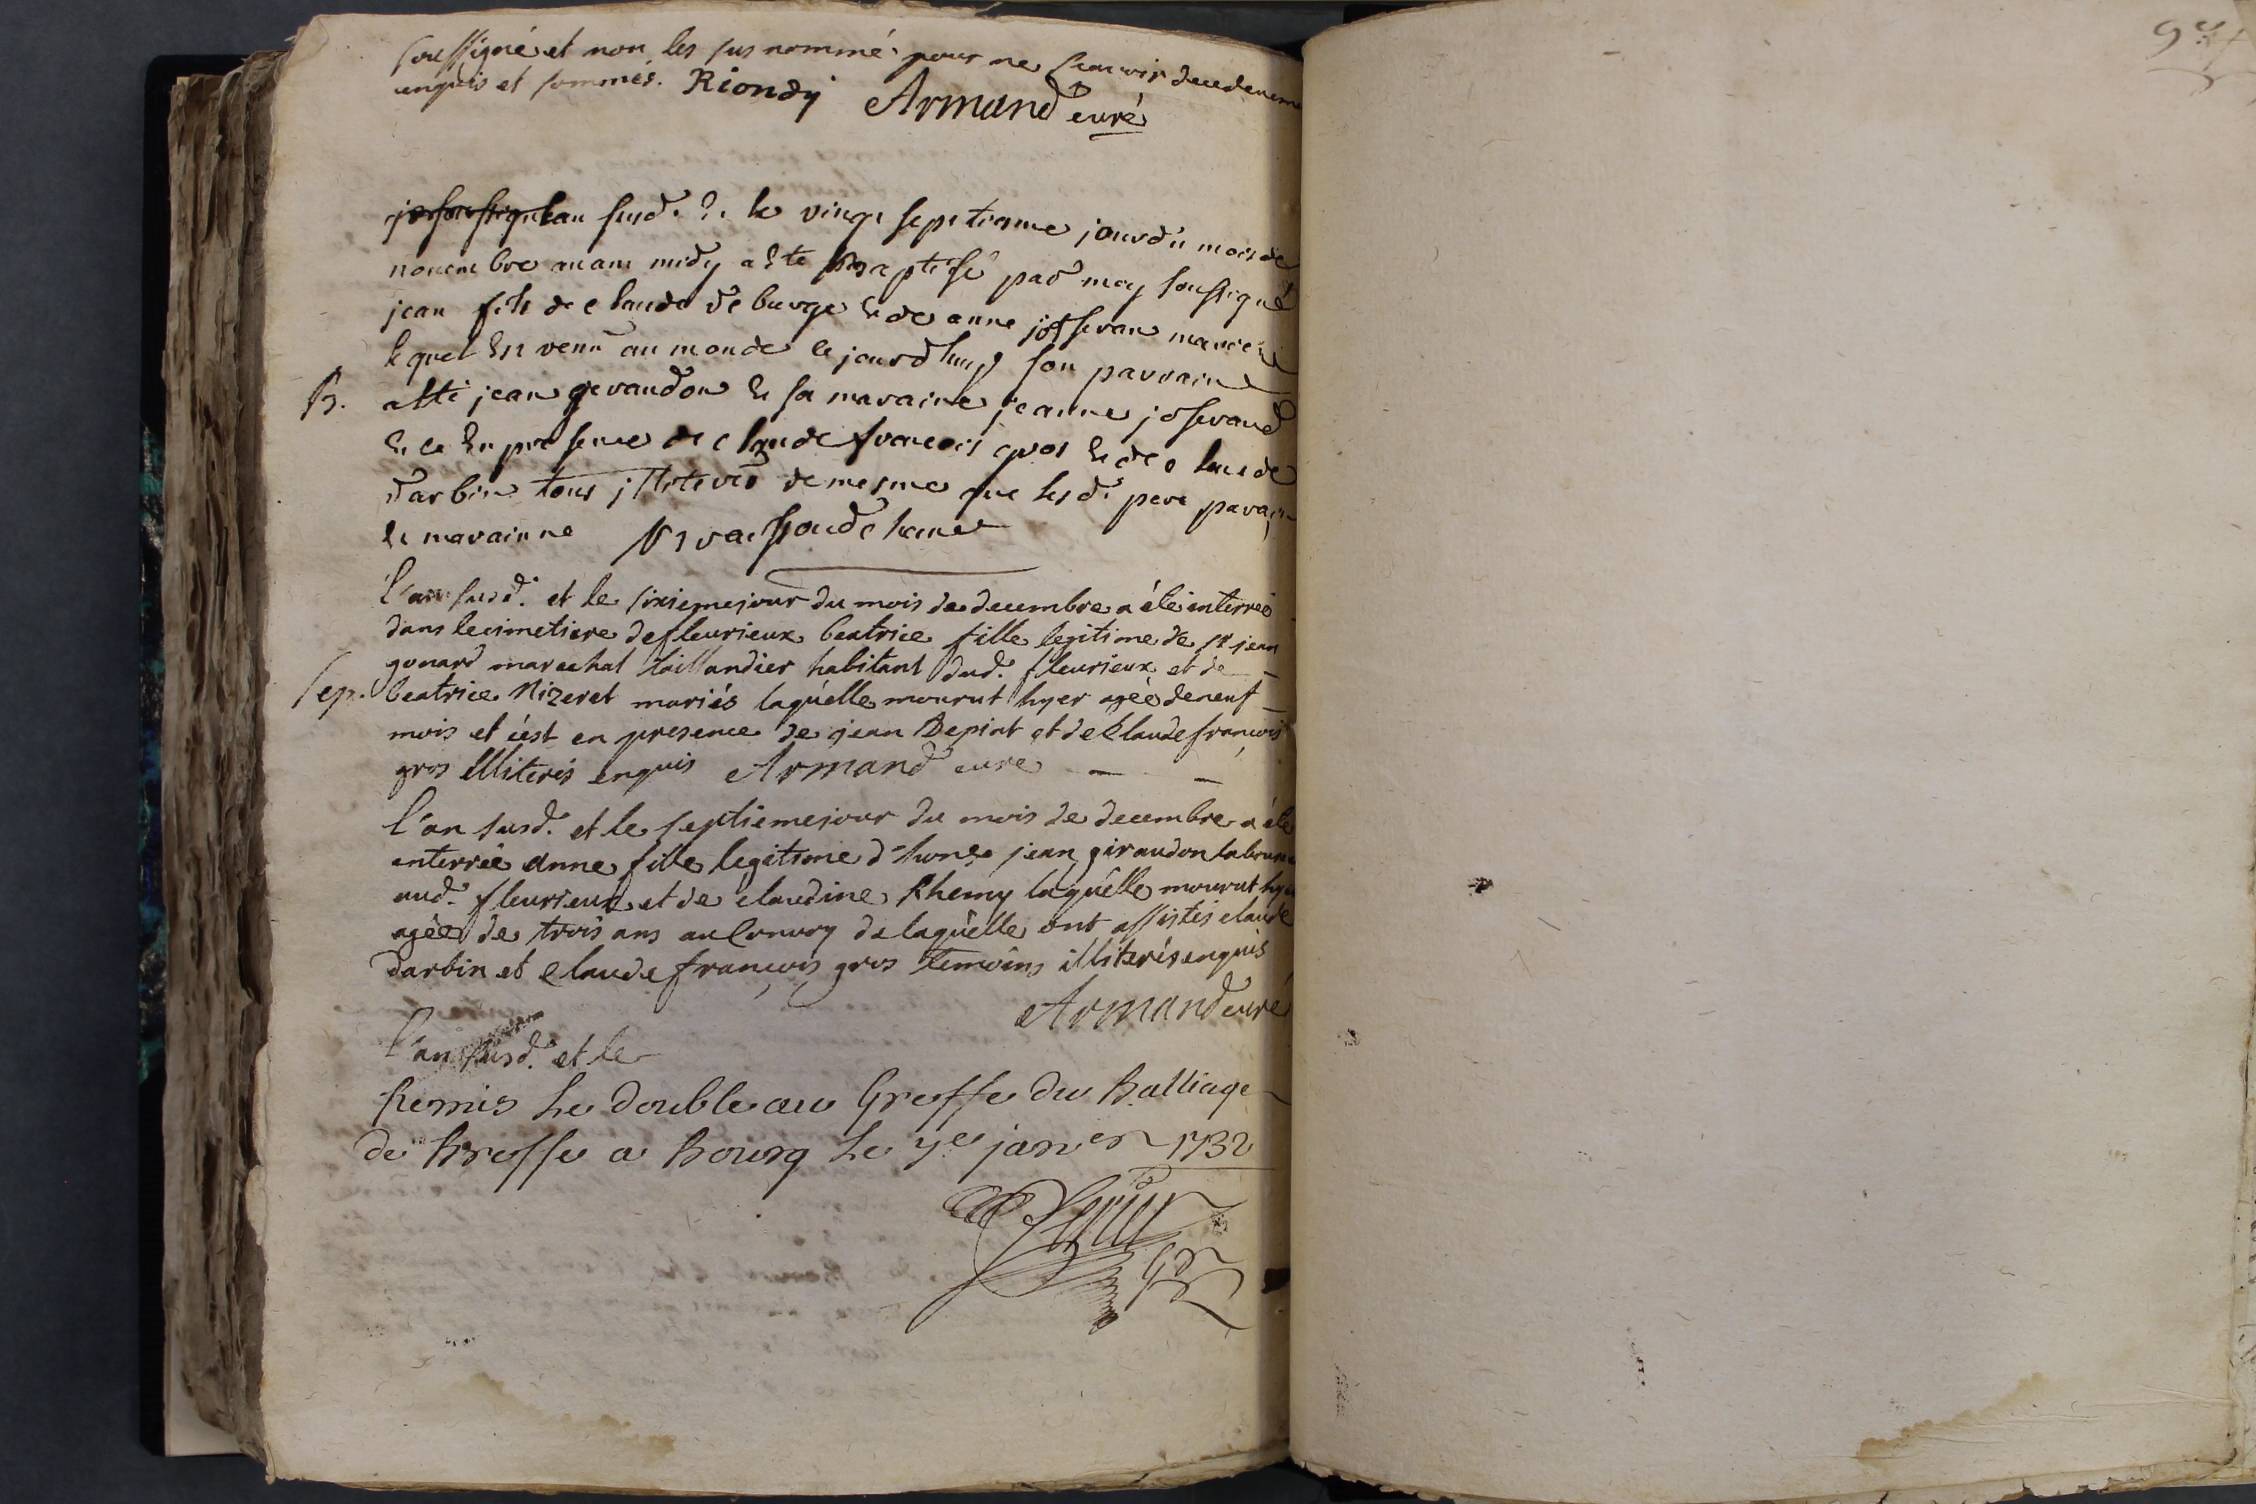 soussigné et non les sus nommé pour ne scavoir de ce deuem
enquis et sommés. Riondy Armand curé
lan susd. & le vingt septiesme jour du mois de
novembre avant midy a esté baptisé par moy soussigné
jean fils de claude deburge & de anne josserand mariés
lequel est venu au monde le jourdhuy son parrain
B. a esté jean gerandon & sa maraine jeanne joserand
& ce en presence de claude francois gros & de claude
darbin tous illiterés de mesme que lesd. pere parain
& marainne
l'an susd. et le sixieme jour du mois de decembre a été interrée
dans le cimetiere de fleurieux beatrice fille legitime de sr jean
gonard marechal taillandier habitant dud. fleurieux et de
Sep. beatrice Nizeret mariés laquelle mourut hyer agée de neuf
mois et c'est en presence de jean Depint et de Claude francois
gros illiterés enquis Armand curé
l'an susd. et le septieme jour du mois de decembre a été
enterrée anne fille legitime d'hon. jean giraudon laboure
aud. fleurieux et de claudine Rhemy laquelle mourut hyer
agée de trois ans au Convoy de laquelle ont assistés claude
darbin et claude françois gros temoins illiterés enquis
Armand curé
l'an susd. et le
Remis le double au Greffe du Balliage
de Bresse a Bourg le 7e janer 1732